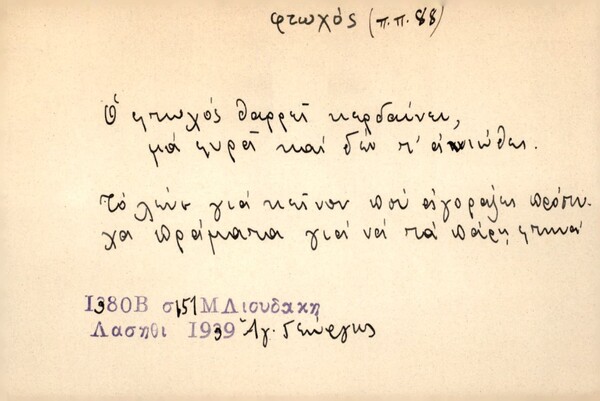 φτωχός (π.π. 88)
Ὁ φτωχός θαρρεῖ κερδαίνει,
μά φυρᾷ καί δέν τ' ἀπνιώθει.
Τό λένε γιά κεῖνον πού ἀγοράζει πρόστυ-
χα πράματα γιά νά τά πάρῃ φτηνά
1380Β σ 151 Μ Λιουδακη
Λασηθι 1939 Ἁγ. Γεώργις